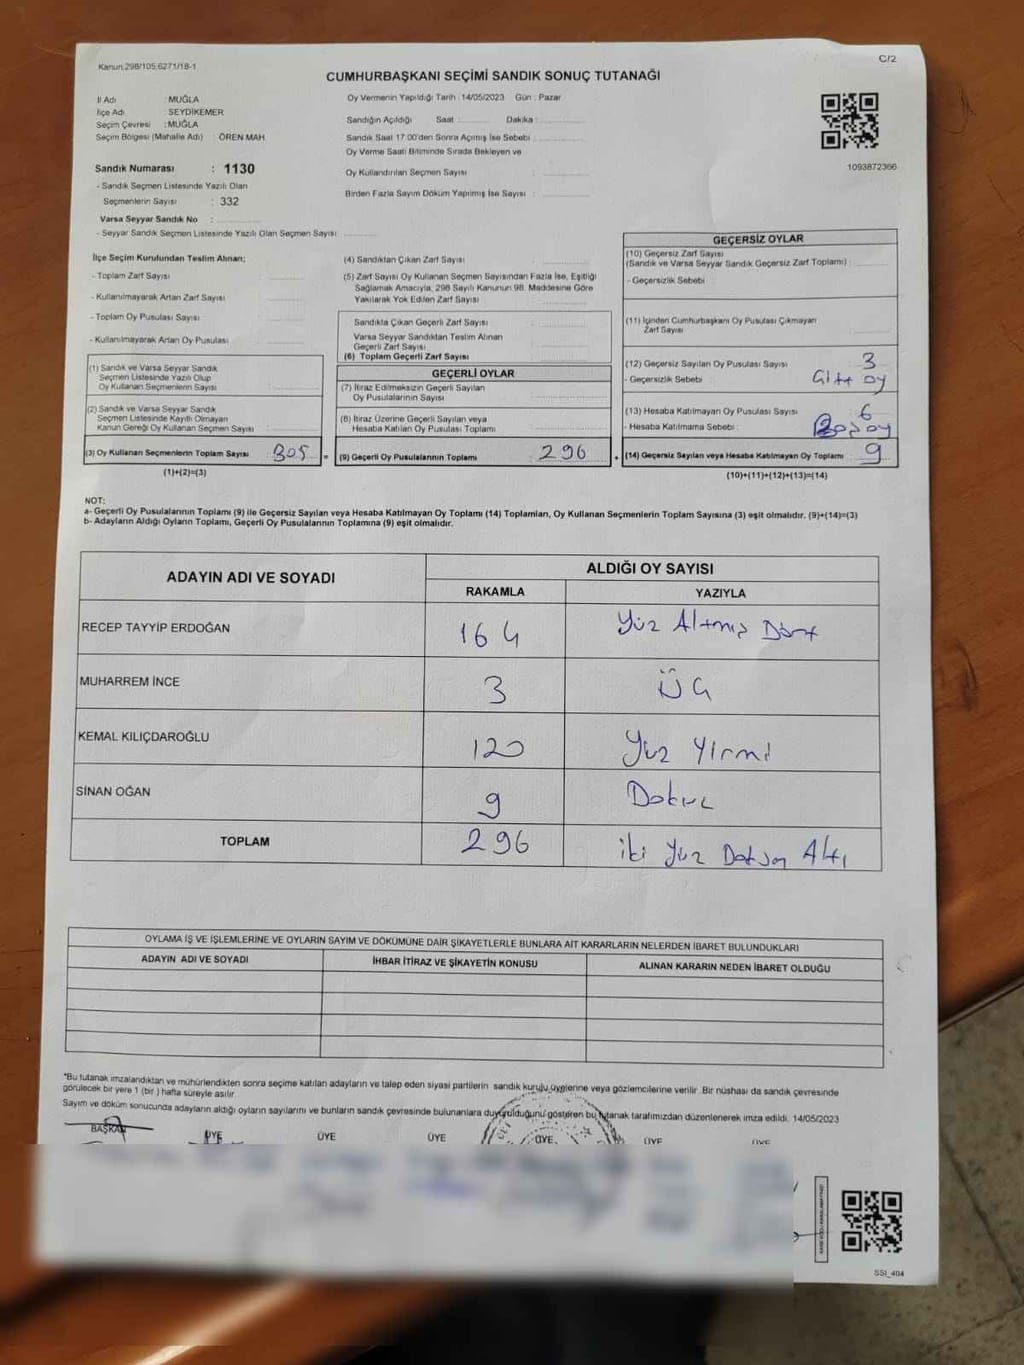 Kanun:298/105,6271/18-1
C/2
CUMHURBAŞKANI SEÇİMİ SANDIK SONUÇ TUTANAĞI
İl Adı : MUĞLA
İlçe Adı : SEYDİKEMER
Seçim Çevresi : MUĞLA
Seçim Bölgesi (Mahalle Adı) ÖREN MAH.
Sandık Numarası : 1130
- Sandık Seçmen Listesinde Yazılı Olan
Seçmenlerin Sayısı : 332
Varsa Seyyar Sandık No :
- Seyyar Sandık Seçmen Listesinde Yazılı Olan Seçmen Sayısı
Oy Vermenin Yapıldığı Tarih : 14/05/2023 Gün : Pazar
Sandığın Açıldığı Saat : Dakika :
Sandık Saat 17.00'den Sonra Açımış İse Sebebi :
Oy Verme Saati Bitiminde Sırada Bekleyen ve
Oy Kullandırılan Seçmen Sayısı :
Birden Fazla Sayım Döküm Yapılmış İse Sayısı :
1093872366
İlçe Seçim Kurulundan Teslim Alınan;
- Toplam Zarf Sayısı
- Kullanılmayarak Artan Zarf Sayısı
- Toplam Oy Pusulası Sayısı
- Kullanılmayarak Artan Oy Pusulası
(1) Sandık ve Varsa Seyyar Sandık
Seçmen Listesinde Yazılı Olup
Oy Kullanan Seçmenlerin Sayısı
(2) Sandık ve Varsa Seyyar Sandık
Seçmen Listesinde Kayıtlı Olmayan
Kanun Gereği Oy Kullanan Seçmen Sayısı
(3) Oy Kullanan Seçmenlerin Toplam Sayısı : 305
(1)+(2)=(3)
(4) Sandıktan Çıkan Zarf Sayısı
(5) Zarf Sayısı Oy Kullanan Seçmen Sayısından Fazla İse, Eşitliği
Sağlamak Amacıyla, 298 Sayılı Kanunun 98. Maddesine Göre
Yakılarak Yok Edilen Zarf Sayısı
Sandıkta Çıkan Geçerli Zarf Sayısı
Varsa Seyyar Sandıktan Teslim Alınan
Geçerli Zarf Sayısı
(6) Toplam Geçerli Zarf Sayısı
GEÇERLİ OYLAR
(7) İtiraz Edilmeksizin Geçerli Sayılan
Oy Pusulalarının Sayısı
(8) İtiraz Üzerine Geçerli Sayılan veya
Hesaba Katılan Oy Pusulası Toplamı
= (9) Geçerli Oy Pusulalarının Toplamı : 296
GEÇERSİZ OYLAR
(10) Geçersiz Zarf Sayısı
(Sandık ve Varsa Seyyar Sandık Geçersiz Zarf Toplamı) :
- Geçersizlik Sebebi
(11) İçinden Cumhurbaşkanı Oy Pusulası Çıkmayan
Zarf Sayısı
(12) Geçersiz Sayılan Oy Pusulası Sayısı : 3
- Geçersizlik Sebebi : Çift oy
(13) Hesaba Katılmayan Oy Pusulası Sayısı : 6
- Hesaba Katılmama Sebebi : Boş oy
+ (14) Geçersiz Sayılan veya Hesaba Katılmayan Oy Toplamı : 9
(10)+(11)+(12)+(13)=(14)
NOT:
a- Geçerli Oy Pusulalarının Toplamı (9) ile Geçersiz Sayılan veya Hesaba Katılmayan Oy Toplamı (14) Toplamları, Oy Kullanan Seçmenlerin Toplam Sayısına (3) eşit olmalıdır. (9)+(14)=(3)
b- Adayların Aldığı Oyların Toplamı, Geçerli Oy Pusulalarının Toplamına (9) eşit olmalıdır.
ADAYIN ADI VE SOYADI
ALDIĞI OY SAYISI
RAKAMLA YAZIYLA
RECEP TAYYİP ERDOĞAN 164 Yüz Altmış Dört
MUHARREM İNCE 3 ÜÇ
KEMAL KILIÇDAROĞLU 120 Yüz Yirmi
SİNAN OĞAN 9 Dokuz
TOPLAM 296 iki Yüz Doksan Altı
OYLAMA İŞ VE İŞLEMLERİNE VE OYLARIN SAYIM VE DÖKÜMÜNE DAİR ŞİKAYETLERLE BUNLARA AİT KARARLARIN NELERDEN İBARET BULUNDUKLARI
ADAYIN ADI VE SOYADI İHBAR İTİRAZ VE ŞİKAYETİN KONUSU ALINAN KARARIN NEDEN İBARET OLDUĞU
"Bu tutanak imzalandıktan ve mühürlendikten sonra seçime katılan adayların ve talep eden siyasi partilerin sandık kurulu üyelerine veya gözlemcilerine verilir. Bir nüshası da sandık çevresinde
görülecek bir yere 1 (bir) hafta süreyle asılır.
Sayım ve döküm sonucunda adayların aldığı oyların sayılarını ve bunların sandık çevresinde bulunanlara duyurulduğunu gösteren bu tutanak tarafımızdan düzenlenerek imza edildi. 14/05/2023
BAŞKAN ÜYE ÜYE ÜYE ÜYE ÜYE ÜYE
SSI_404